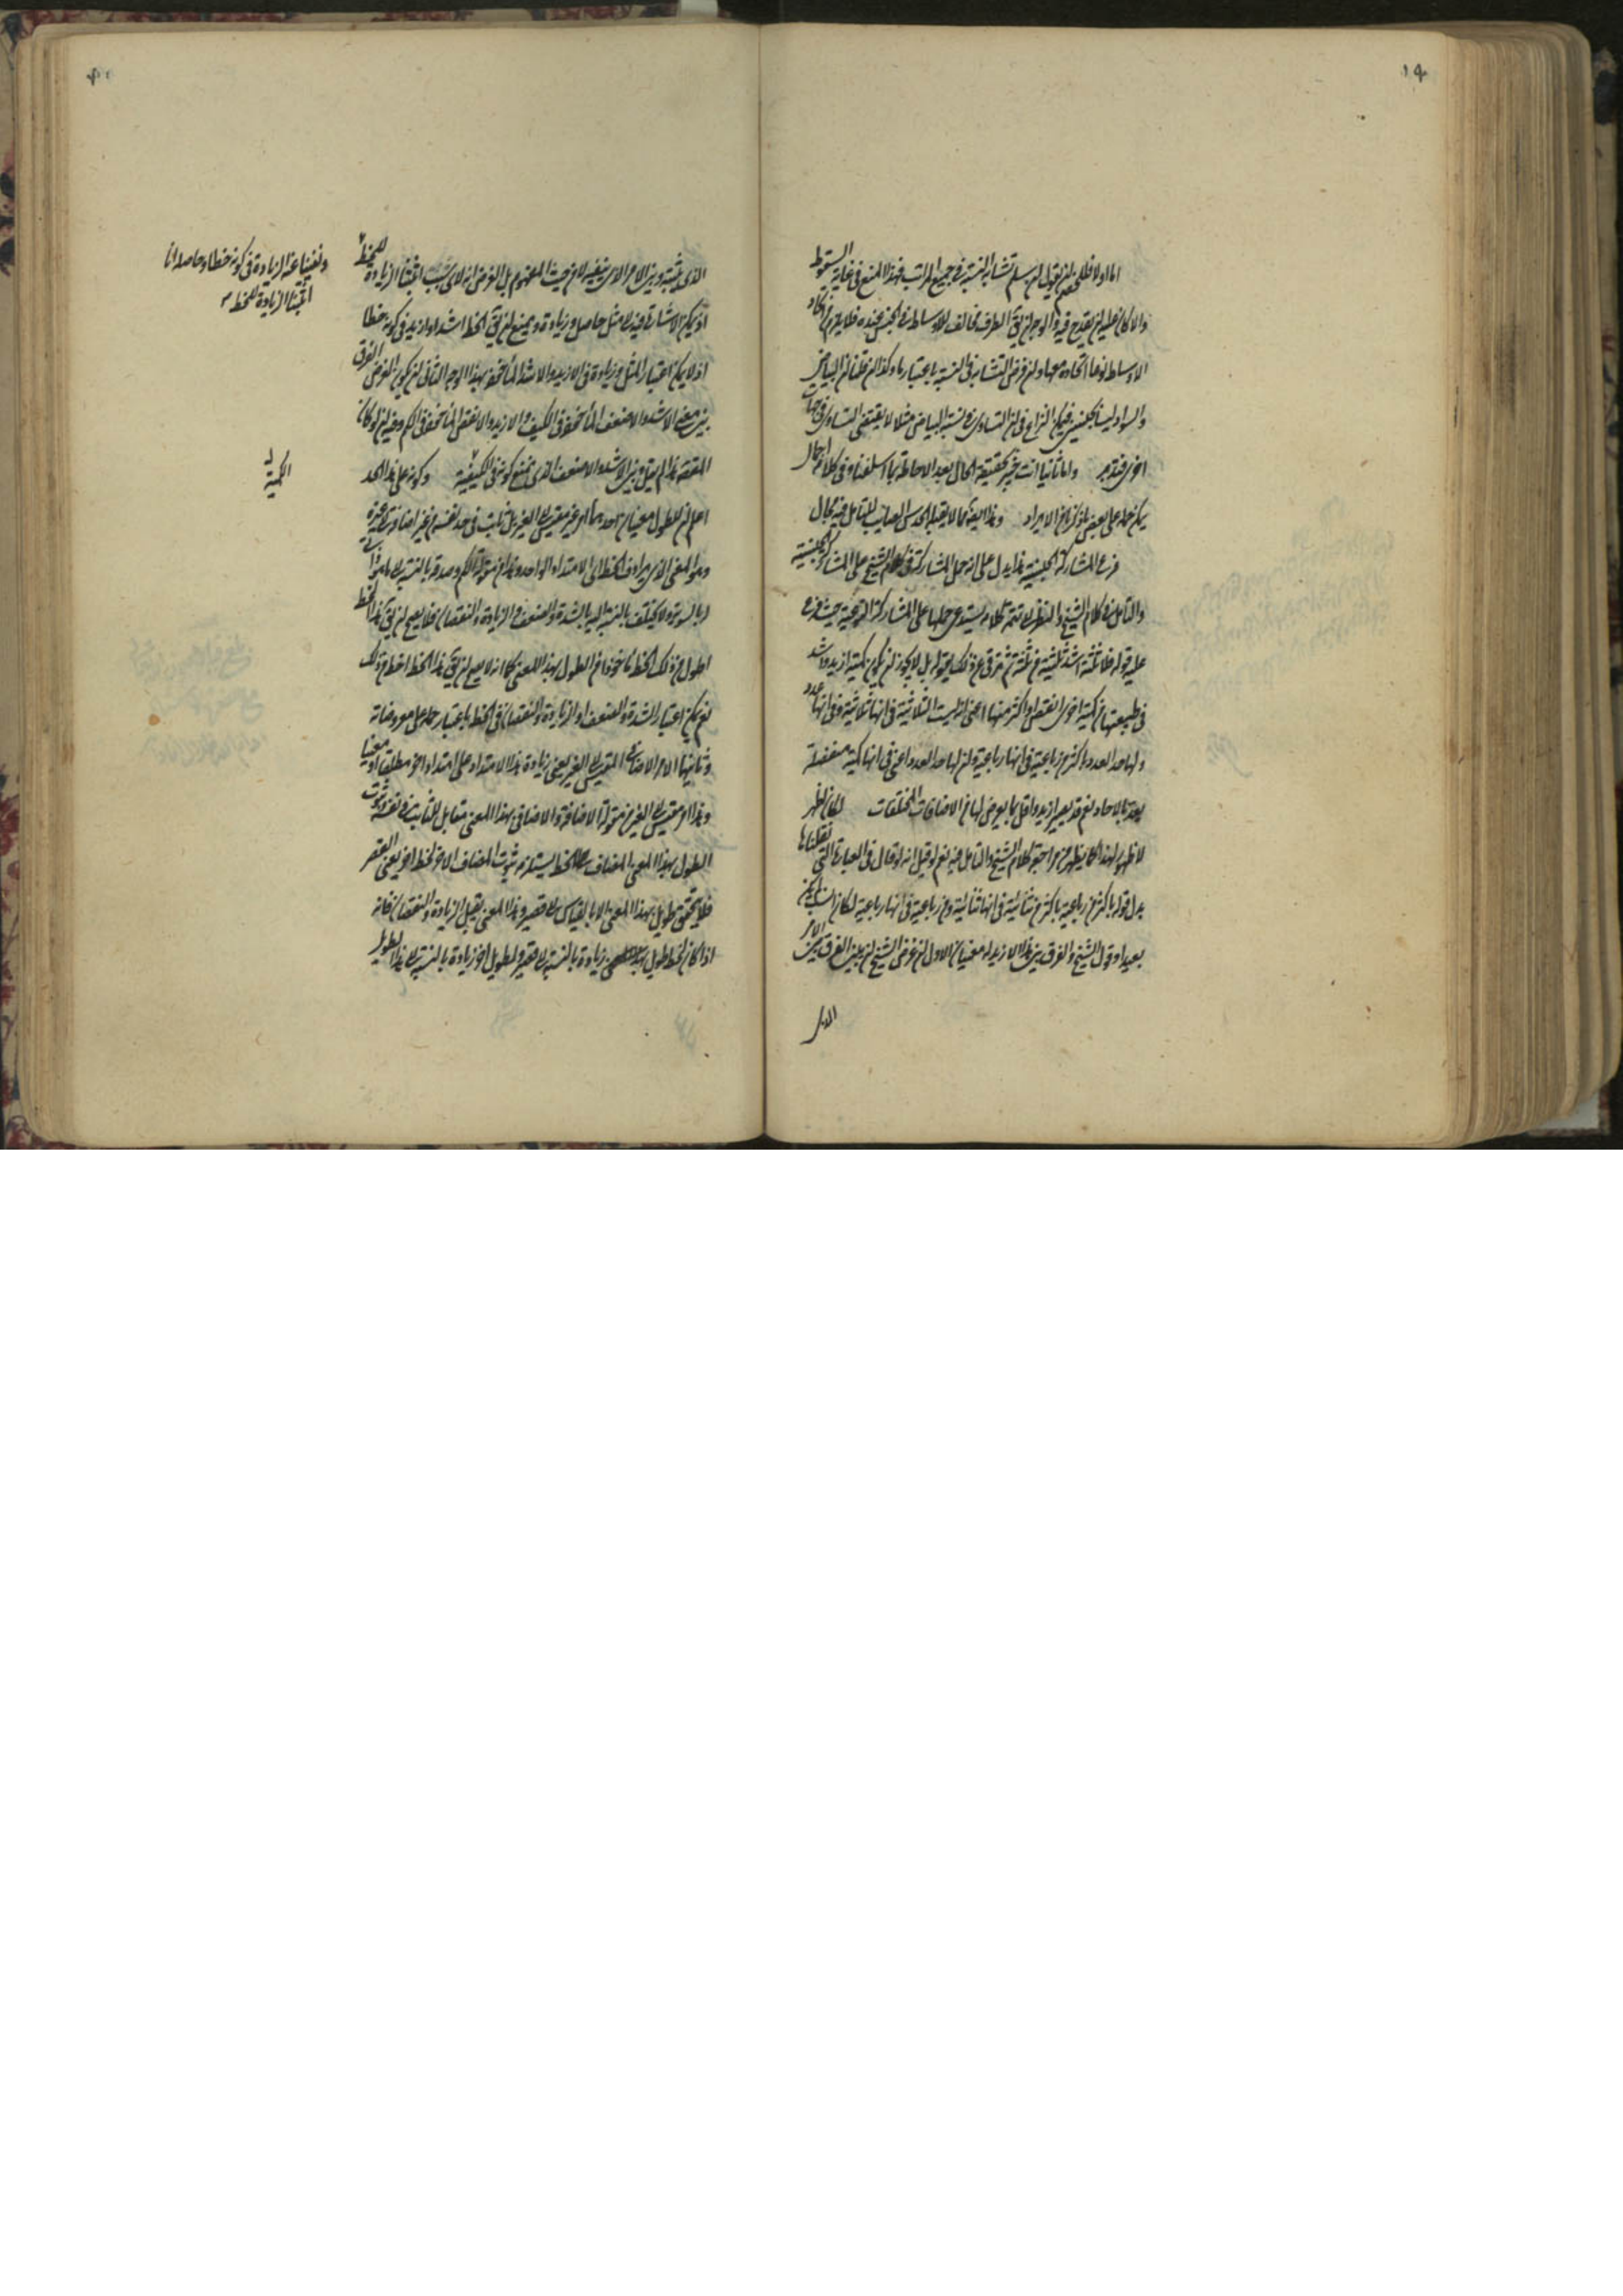 ١٩
اما اولا فلان للخصم ان يقول لم يسلم تشابه النسبة في جميع المراتب فهذا المنع في غاية السقوط
والا كان عليه ان يقدح فيه والوجه ان يق الطرف مخالف للاوساط في الجنس عنده فلا يلزم اتحاد
الاوساط لو فرض التشابه في النسبة باعتبار ما وكذا ان قلنا ان البياض
والسواد ليسا بجنسين فيمكن النزاع في ان التساوى في نسبة البياض مثلا لا يقتضى التساوى في جهات
اخرى فتدبر واما ثانيا انت خبير بحقيقة الحال بعد الاحاطة بما اسلفناه وفى كلامه اجمال
يمكن حمله على بعض ما ذكرناه من الايراد وهذا ايضا مما لا يقبله الحدس الصائب للتامل فيه مجال
فرع المشاركة الجنسية هذا يدل على انه حمل المشاركة في كلام الشيخ على المشاركة الجنسية
والتامل في كلام الشيخ والنظر الى تتمة كلامه يستدعى حملها على المشاركة النوعية حيث فرع
عليه قوله فلا ثلثة اشد ثلثية من ثلثة ثم ترقى عن ذلك بقوله بل لا يجوز ان يكون كمية ازيد واشد
في طبيعتها من كمية اخرى انقص او اكثر منها اعنى ليست الثلاثية في انها ثلاثية وفى انها عدد
ولها حد العدد باكثر من رباعية في انها رباعية وان لها حد العدد اعنى في انها كمية منفصلة
بعد بالاحاد نعم قد يصير ازيد واقل بما يعرض لها من الاضافات المختلفات لكان اظهر
لا ظهور لهذا كما يظهر من مراجعة كلام الشيخ والتامل فيه نعم لو قيل انه لو قال في العبارة التى نقلناها
بدل قوله باكثر من رباعية باكثر من ثنائية في انها ثنائية ومن رباعية في انها رباعية لكان انسب لم يكن
بعيدا وقول الشيخ والفرق بين هذا الازيد له معنيان الاول ان غرض الشيخ ان يبين الفرق بين الامر
الامر
الذى يثبته وبين الامر الذى ينفيه لا من حيث المفهوم بل الغرض انه لاى سبب اثبتنا الزيادة للخط
ونفينا عنه الزيادة في كونه خطا وحاصله انا
اثبتنا الزيادة للخط
اذ يمكن الاشارة فيه الى مثل حاصل وزيادة ويمتنع ان يق الخط اشد او ازيد في كونه خطا
اذ لا يمكن اعتبار المثل وزيادة في الازيد والاشد المأخوذ بهذا الوجه الثانى ان يكون الغرض الفرق
بين معنى الاشد والاضعف المأخوذ في الكيف والازيد والانقص المأخوذ في الكم وفيه انه لو كان
المقصود هذا لم يقل وبين الاشد والاضعف الذى يمتنع كونه في الكيفية وكونه على هذا الحد
الكمية
اعلم ان للطول معنيان احدهما امر غير مقيس الى الغير بل ثابت في حد نفسه من غير اضافة الى غيره
وهو المعنى الذى يرادف الخط اى الامتداد الواحد وهذا من مقولة الكم وصدقه بالنسبة الى ما هو ذاتى
له بالسوية ولا يختلف بالنسبة اليه بالشدة والضعف والزيادة والنقصان فلا يصح ان يق هذا الخط
اطول من ذلك الخط مأخوذا من الطول بهذا المعنى كما انه لا يصح ان يق هذا الخط اخط من ذلك
نعم يمكن اعتبار الشدة والضعف او الزيادة والنقصان في الخط باعتبار حمله على معروضاته
وثانيها الامر الاضافى المقيس الى الغير يعنى زيادة هذا الامتداد على امتداد اخر مطلقا او معينا
وهذا امر مقيس الى الغير من مقولة الاضافة والاضافى بهذا المعنى مقابل للثابت في نفسه وثبوت
الطول بهذا المعنى المضاف للخط يستلزم ثبوت المضاف الاخر لخط اخر يعنى القصر
فلا يتحقق طويل بهذا المعنى الا بالقياس الى قصير وهذا المعنى يقبل الزيادة والنقصان فانه
اذا كان لخط طويل زيادة بالنسبة الى قصير ولطويل اخر زيادة بالنسبة الى هذا الطويل